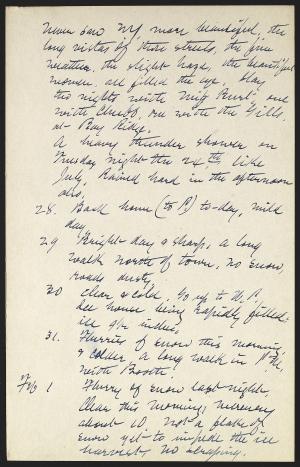 Never saw N.Y. more beautiful, the
long vistas of those streets, the fine
weather, the slight haze, the beautiful
women, all filled the eye. Stay
two nights with Miss Burt: one
with Chubb, one with the Gills.
at Bay Ridge.
A heavy thunder shower on
Tuesday night the 24th like
July. Rained hard in the afternoon
also,
28. Back home (to P.) to-day, mild
day
29 Bright day & sharp, a long
walk north of town, no snow,
roads dusty
30 Clear & cold. Go up to W. P.
Ice house being rapidly filled:
ice 9½ inches.
31. Flurries of snow this morning,
& colder, a long walk in P.M.
with Booth.
Feb 1 Flurry of snow last night.
Clear this morning; mercury
about 10. Not a flake of
snow yet to impede the ice
harvest, no scraping.